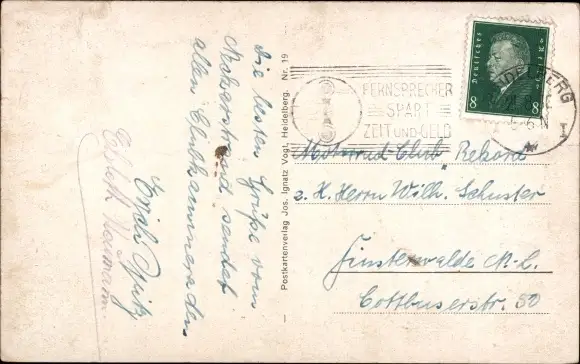 Die besten Grüße vom
Neckarstrand sendet
allen Clubkameraden
Erich Opitz
Postkartenverlag Jos. Ignatz Vogt, Heidelberg. Nr. 19
Deutsches Reich
8 8
HEIDELBERG
FERNSPRECHER
SPART
ZEIT UND GELD
Motorrad-Club "Rekord"
z. H. Herrn Wilh. Schuster
Finsterwalde N.-L.
Cottbuserstr. 50